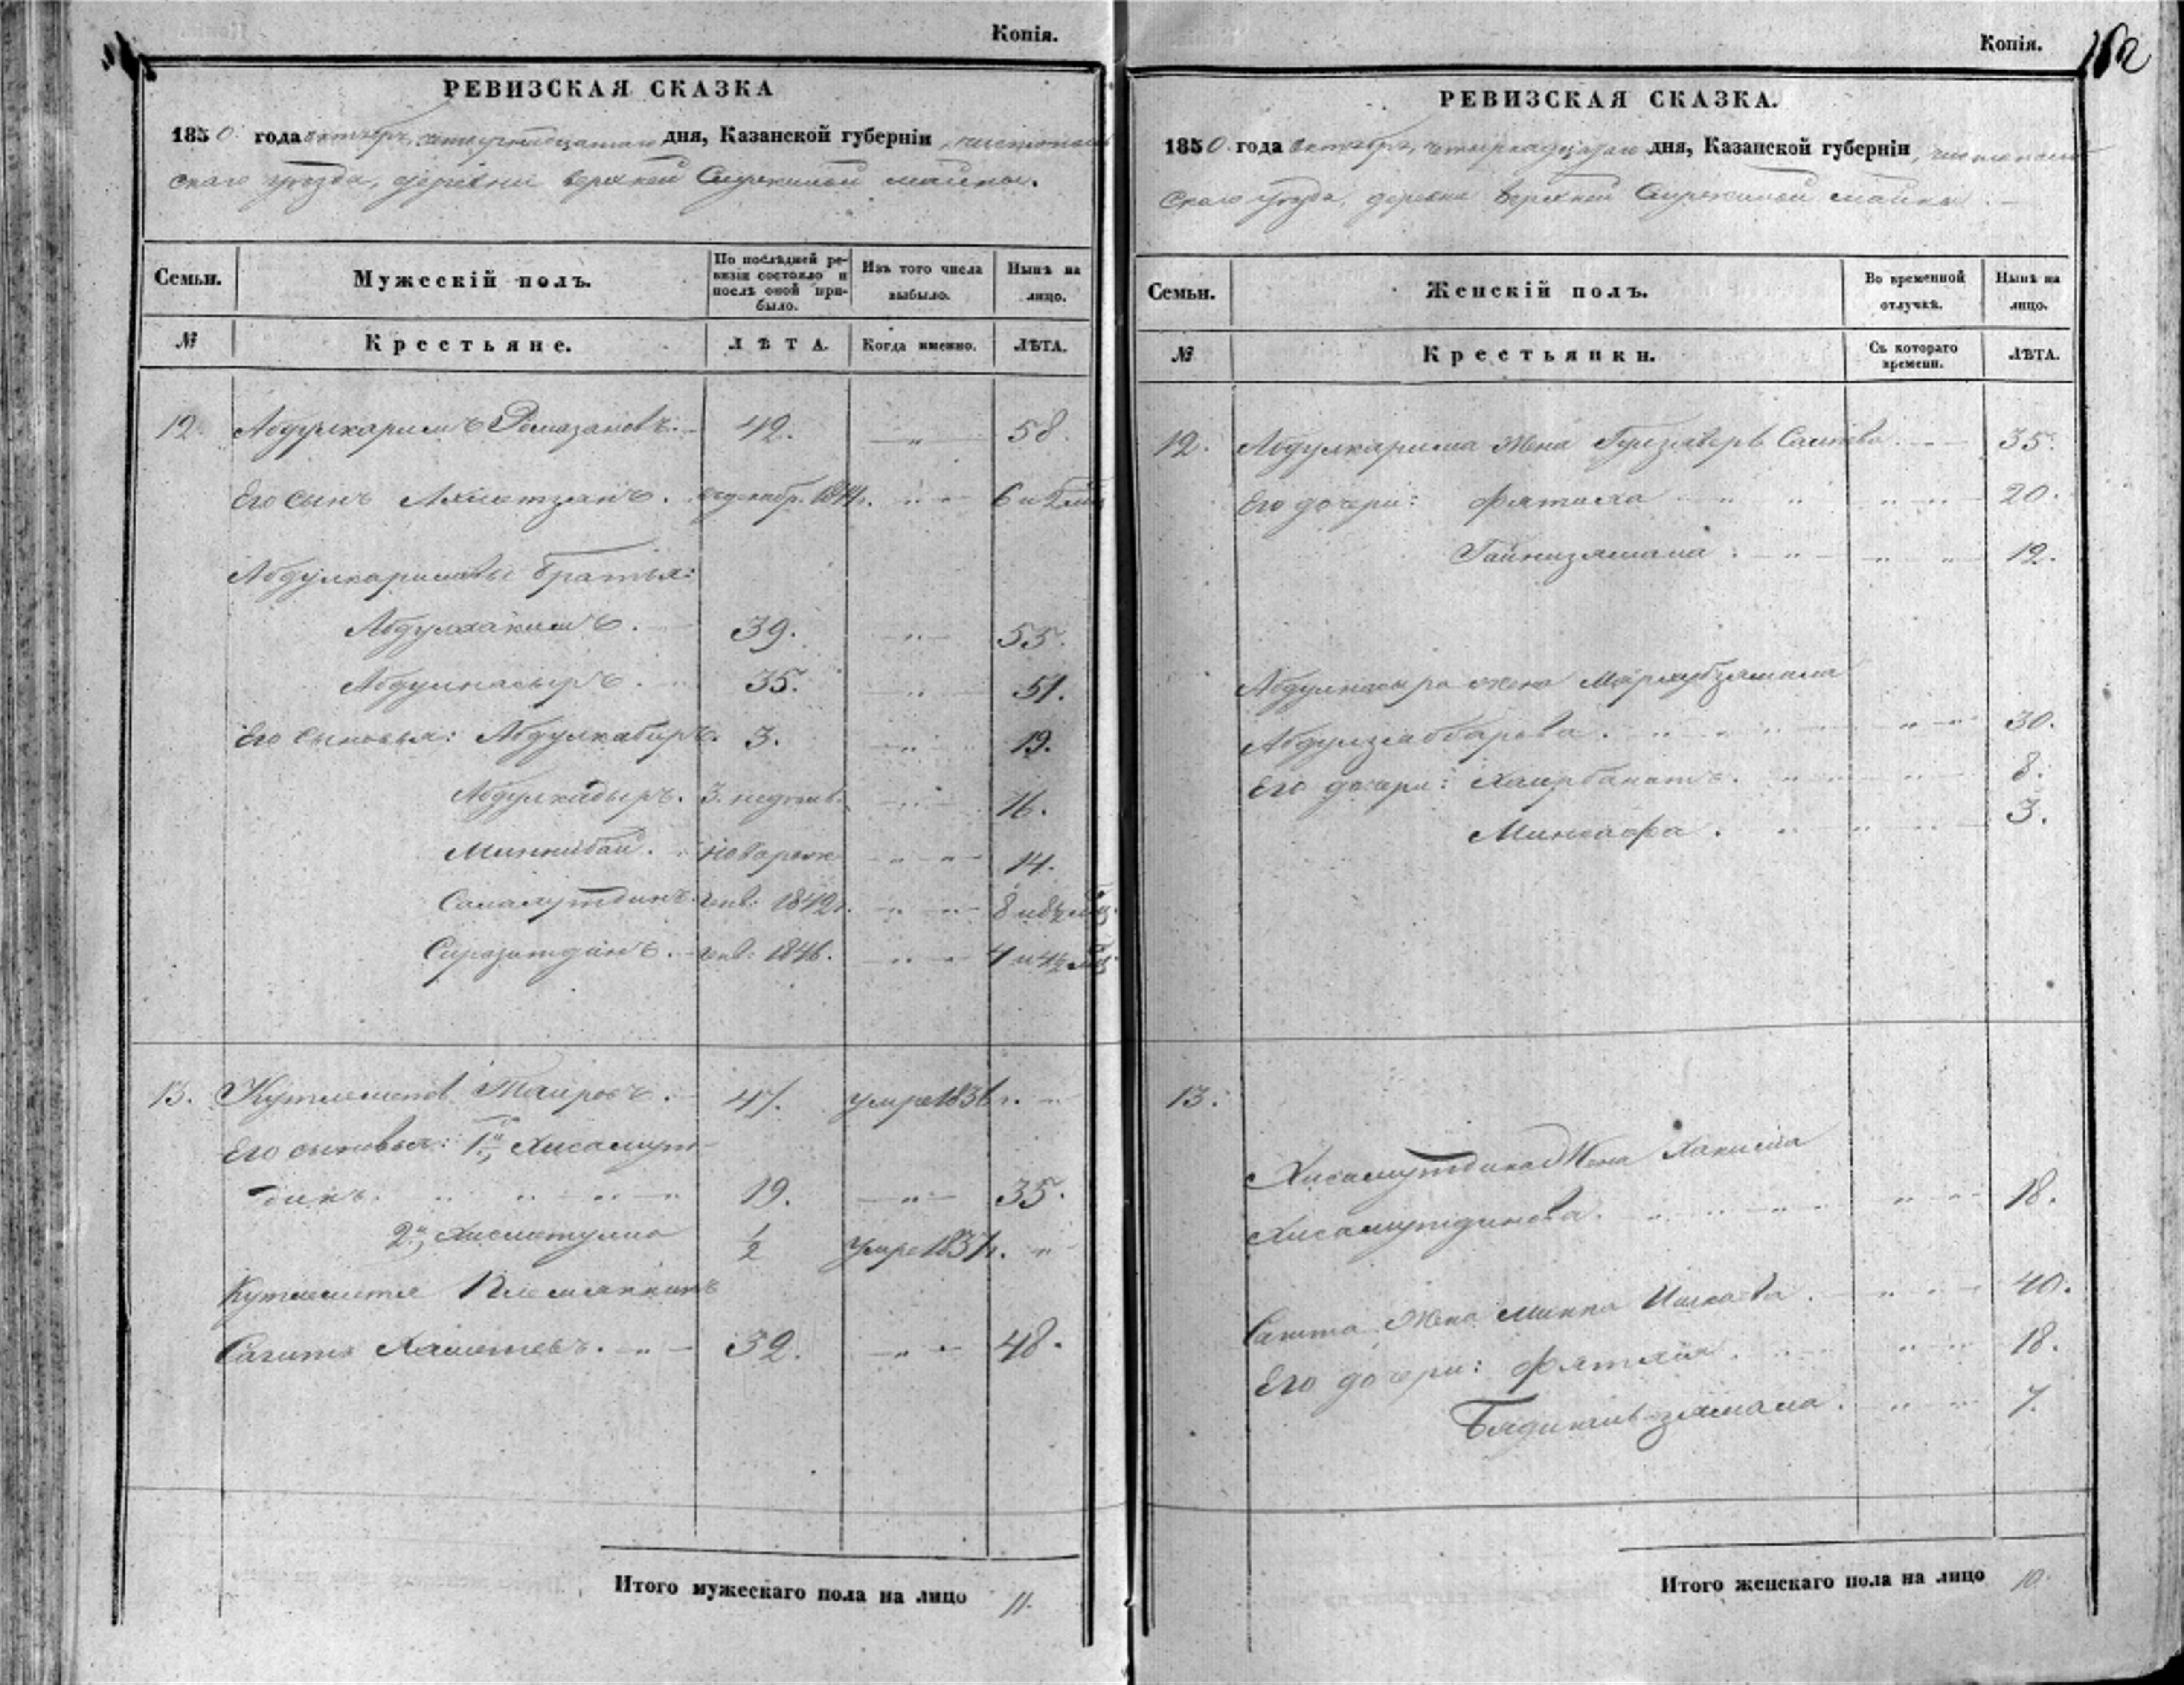 Копія.
РЕВИЗСКАЯ СКАЗКА
1850 года октября четырнадцатаго дня, Казанской губерніи, чистополь
скаго уѣзда, деревни верхней майны.
Семьи. Мужескій полъ. По послѣдней ревизіи состояло и послѣ оной прибыло. Изъ того числа выбыло. Нынѣ на лицо.
№ Крестьяне. ЛѢТА. Когда именно. ЛѢТА.
12. Абдулкаримъ Рамазановъ. 42. — " — 58.
Его сынъ Ахметзанъ. 1844г. " — 6 и
Абдулкаримовы братья:
Абдулхакимъ. 39. — " — 55.
Абдулнасыръ. 35. — " — 51.
Его сыновья: Абдулкабиръ. 3. — " — 19.
Абдулкадыръ. 3. недѣль. — " — 16.
Миннибай. новорож — " — 14.
Самалутдинъ. янв: 1842г. — " — 8 и 8½ мѣц.
Сиразитдинъ. янв: 1846. — " — 4 и 4½ мѣц
13. Таировъ. 47. умре 1836г. —
Его сыновья: 1й, Хисамут-
динъ. " " " 19. — " — 35.
2й, Хисметулла ½ умре 1837г. "
племянникъ
Сагитъ Хаметевъ. — " — 32. — " — 48.
Итого мужескаго пола на лицо 11.
Копія.
РЕВИЗСКАЯ СКАЗКА.
1850 года октября, четырнадцатаго дня, Казанской губерніи, чистополь
скаго уѣзда, деревни верхней майны.
Семьи. Женскій полъ. Во временной отлучкѣ. Нынѣ на лицо.
№ Крестьянки. Съ котораго времени. ЛѢТА.
12. Абдулкарима жена Саитова. — 35.
Его дочери: Фатиха " " " 20.
Гайнизямала. " " " 12.
Абдулнасыра жена
Абдулзаббарова. " " " 30.
Его дочери: Хаирбанатъ. " " 8.
Минсафа. " " 3.
13.
Хисамутдина жена
Хисамутдинова. " " " 18.
Сагита жена Минна " " 40.
Его дочери: " " 18.
зямала. " " 7.
Итого женскаго пола на лицо 10.